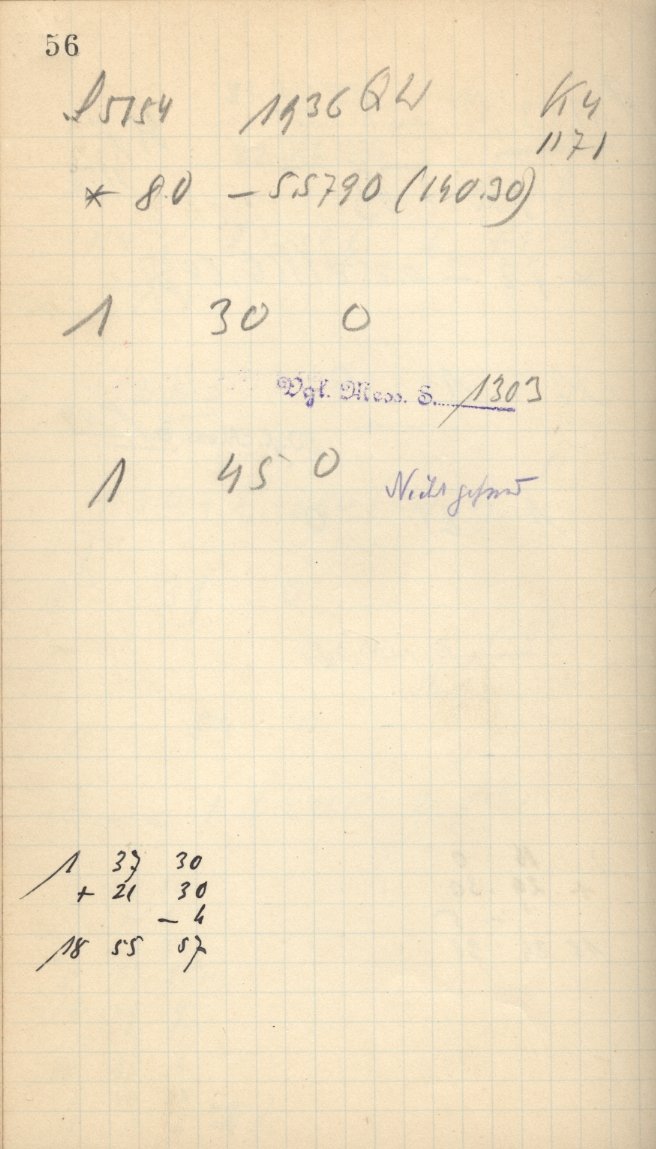 56
S 5154 1936 QW K4
1171
* 8.0 – 5.5790 (140.30)
1 30 0
Vgl. Mess. S. 1303
1 45 0 Nicht gefund
1 37 30
+ 21 30
– 4
18 55 57